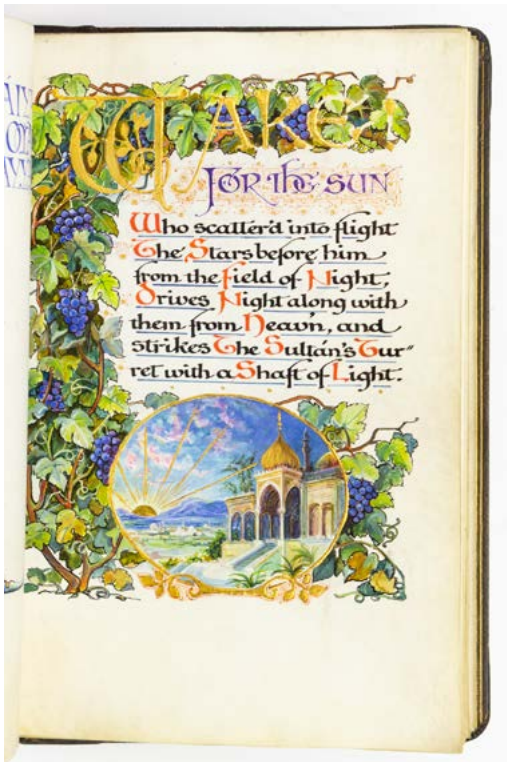 WAKE!
FOR The SUN
Who scatter'd into flight
The Stars before him
from the Field of Night,
Drives Night along with
them from Heav'n, and
strikes The Sultán's Tur"
ret with a Shaft of Light.